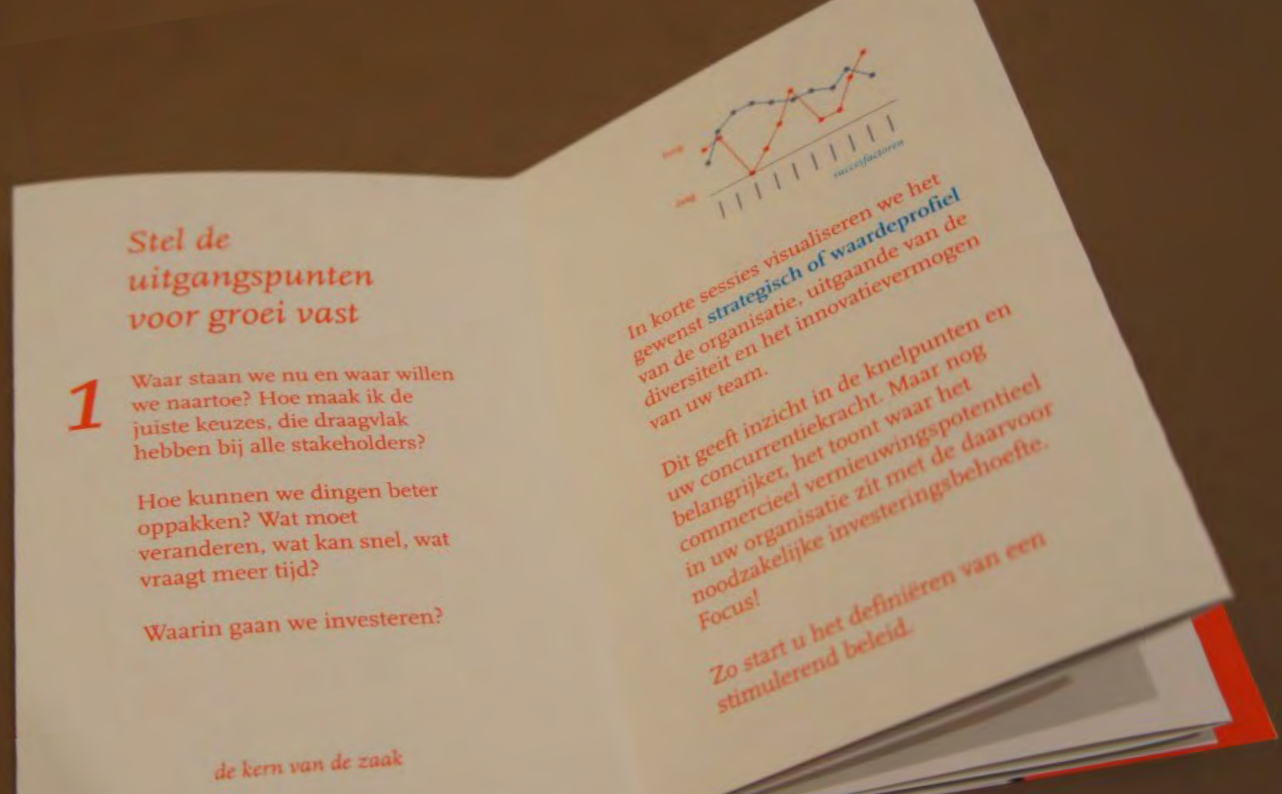 Stel de
uitgangspunten
voor groei vast
1
Waar staan we nu en waar willen
we naartoe? Hoe maak ik de
juiste keuzes, die draagvlak
hebben bij alle stakeholders?
Hoe kunnen we dingen beter
oppakken? Wat moet
veranderen, wat kan snel, wat
vraagt meer tijd?
Waarin gaan we investeren?
de kern van de zaak
hoog
laag
succesfactoren
In korte sessies visualiseren we het
gewenst strategisch of waardeprofiel
van de organisatie, uitgaande van de
diversiteit en het innovatievermogen
van uw team.
Dit geeft inzicht in de knelpunten en
uw concurrentiekracht. Maar nog
belangrijker, het toont waar het
commercieel vernieuwingspotentieel
in uw organisatie zit met de daarvoor
noodzakelijke investeringsbehoefte.
Focus!
Zo start u het definiëren van een
stimulerend beleid.